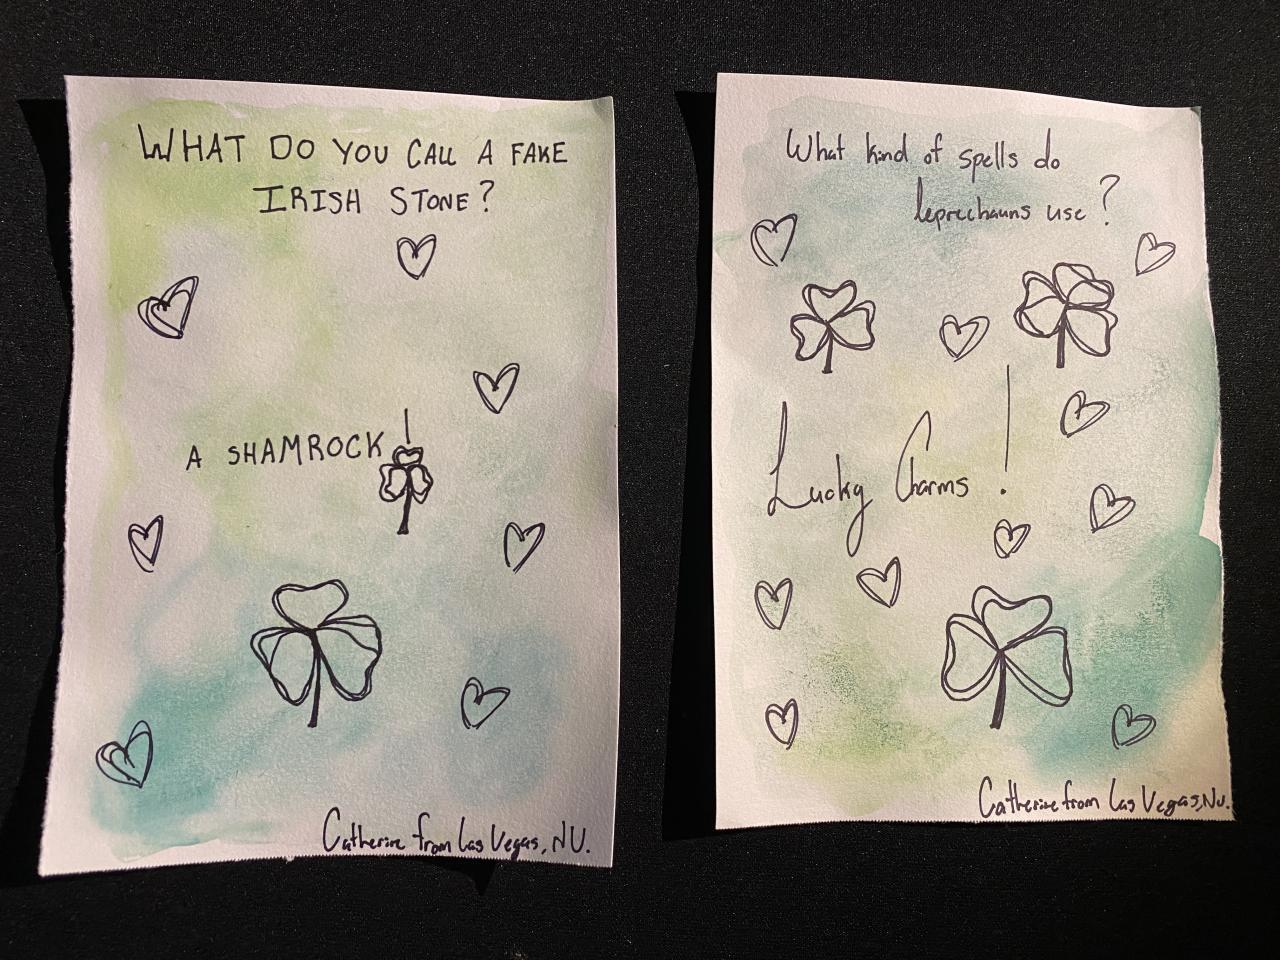 WHAT DO YOU CALL A FAKE
IRISH STONE?
A SHAMROCK!
Catherine from Las Vegas, NV.
What kind of spells do
leprechauns use?
Lucky Charms!
Catherine from Las Vegas, NV.